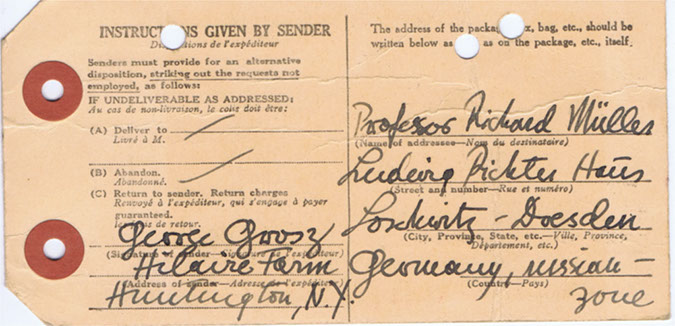 INSTRUCTIONS GIVEN BY SENDER
Directions de l'expéditeur
Senders must provide for an alternative
disposition, striking out the requests not
employed, as follows:
IF UNDELIVERABLE AS ADDRESSED:
Au cas de non-livraison, le colis doit être:
(A) Deliver to
Livré à M.
(B) Abandon.
Abandonné.
(C) Return to sender. Return charges
Renvoyé à l'expéditeur, qui s'engage à payer
guaranteed.
de retour.
George Grosz
(Signature of sender—Signature de l'expéditeur)
Hilaire Farm
(Address of sender—Adresse de l'expéditeur)
Huntington, N.Y.
The address of the package, box, bag, etc., should be
written below as as on the package, etc., itself.
Professor Richard Müller
(Name of addressee—Nom du destinataire)
Ludwig Richter Haus
(Street and number—Rue et numéro)
Loschwitz - Dresden
(City, Province, State, etc.—Ville, Province,
Département, etc.)
Germany, russian -
(Country—Pays)
zone